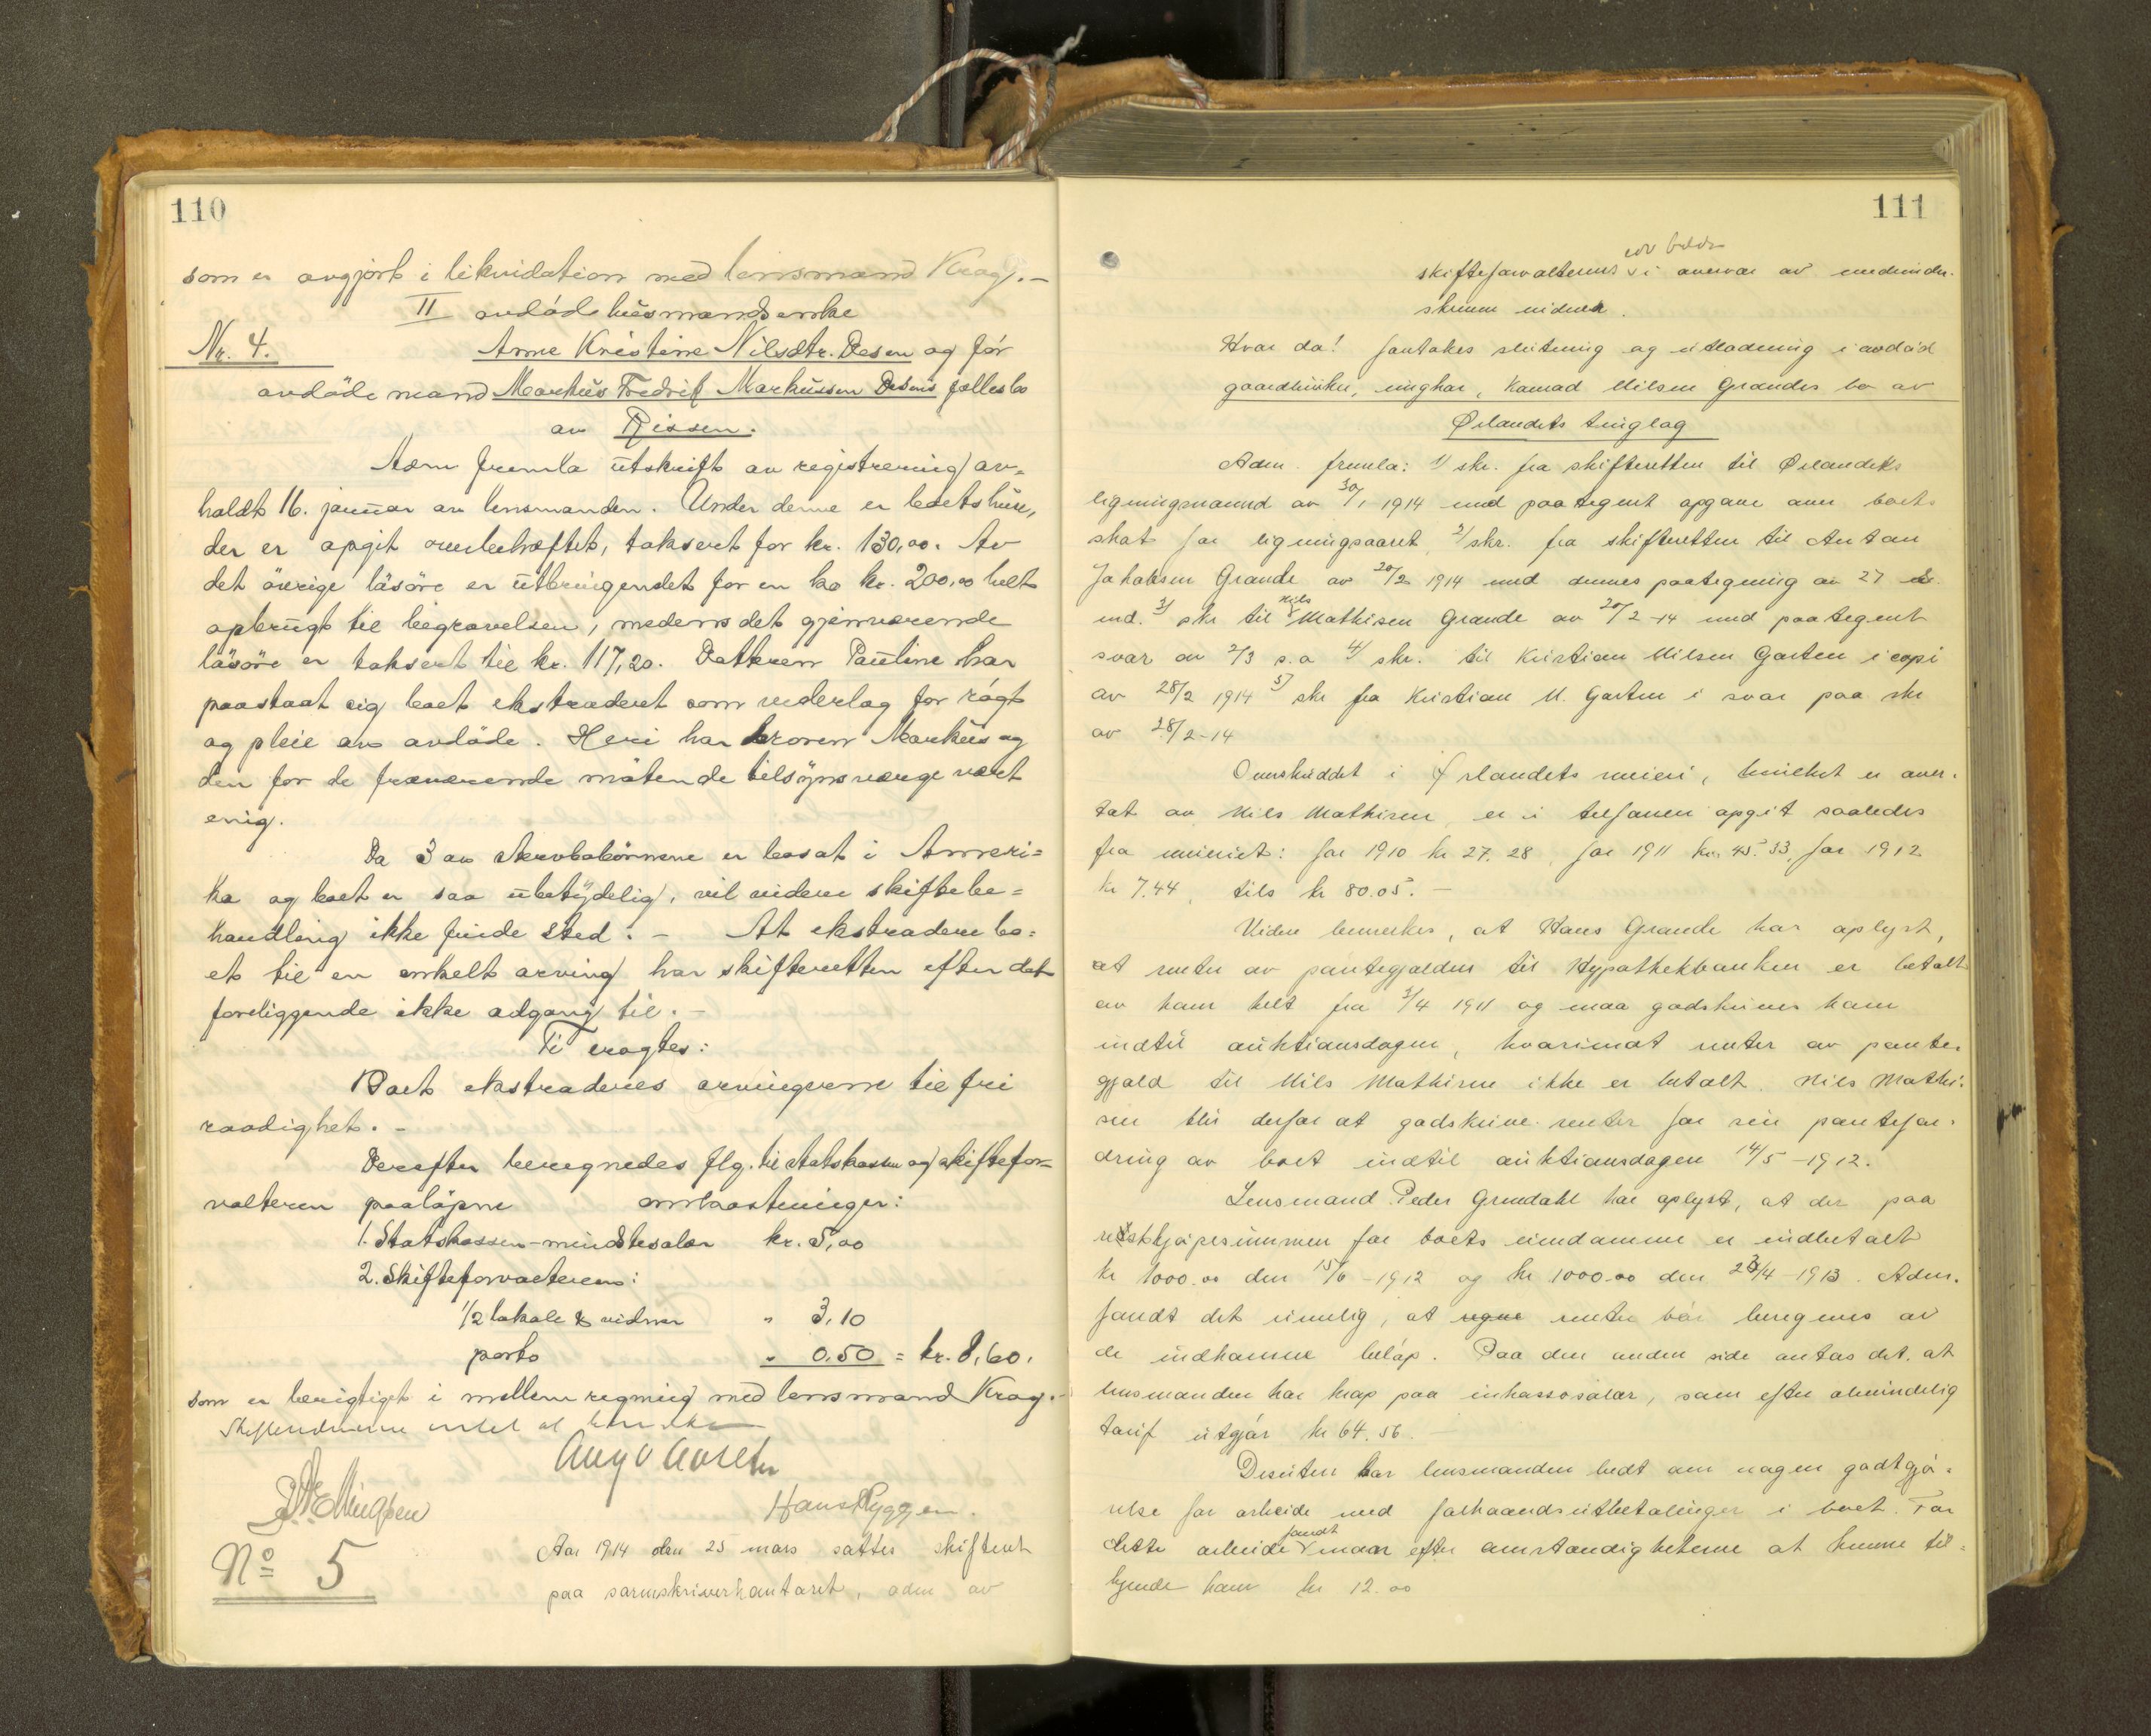 110
som er avgjort i likvidation med lensmand Krag. -
II avdöde husmandsenke
Nr. 4. Anne Kristine Nilsdtr. Desen og før
avdöde mand Markus Fredrik Markussen Desens fællesbo
av Rissen.
Adm fremla utskrift av registrering av=
holdt 16. januar av lensmanden. Under denne er boets huse,
der er opgit ombehæftet, taksert for kr. 130,00. Av
det övrige lösöre er utbringendet for en ko kr. 200,00 helt
opbrugt til begravelsen, medens det gjenværende
lösöre er taksert til kr. 117,20. Datteren Pauline har
paastaat sig boet ekstradert som vederlag for rögt
og pleie av avdöde. Heri har broren Markus og
den for de fraværende mötende tilsynsverge været
enig.
Da 3 av stervbobörnene er bosat i Ameri=
ka og boet er saa ubetydelig, vil videre skiftebe=
handling ikke finde sted. - At ekstradere bo=
et til en enkelt arving har skifteretten efter det
foreliggende ikke adgang til. -
Ti eragtes:
Boet ekstraderes arvingerne til fri
raadighet. -
Derefter beregnedes flg. til statskassen og skiftefor=
valteren paaløpne omkostninger:
1. Statskassen - mindstesalær kr. 5,00
2. Skifteforvalteren:
1/2 lokale & vidner " 3,10
porto " 0,50 = kr. 8,60.
som er berigtiget i mellemregning med lensmand Krag. -
Skiftevidnerne intet at bemerke
Aug
Ellingsen
Hans Ryggen.
No 5 Aar 1914 den 25 mars sattes skifteret
paa sorenskriverkontoret, adm av
111
skifteforvalterens i overvær av medunder-
skrevne vidner.
Hvor da! foretokes slutning og utlodning i avdöd
gaardbruker, ungkar, Konrad Nilsen Grandes bo av
Ørlandets tinglag
Adm. fremla: 1/ skr. fra skifteretten til Ørlandets
ligningsmænd av 30/1 1914 med paategnet opgave over boets
skat for ligningsaaret, 2/ skr. fra skifteretten til Anton
Jakobsen Grande av 20/2 1914 med dennes paategning av 27 s.
md. 3/ skr til Nils Mathisen Grande av 20/2 -14 med paategnet
svar av 2/3 s.a 4/ skr. til Kristian Nilsen Garten i copi
av 28/2 1914 5/ skr fra Kristian N. Garten i svar paa skr
av 28/2-14
Overskuddet i Ørlandets meieri, hvilket er over-
tat av Nils Mathisen er i telefonen opgit saaledes
fra meieriet: for 1910 kr 27.28, for 1911 kr. 45.33, for 1912
kr 7.44, tils kr 80.05. -
Videre bemerkes, at Hans Grande har oplyst,
at renter av pantegjælden til Hypothekbanken er betalt
av ham helt fra 3/4 1911 og maa godskrives ham
indtil auktionsdagen, hvorimot renter av pante-
gjæld til Nils Mathisen ikke er betalt. Nils Mathi-
sen blir derfor at godskrive renter for sin pantefor-
dring av boet indtil auktionsdagen 14/5 -1912.
Lensmand Peder Grundahl har oplyst, at der paa
restkjöpesummen for boets eiendomme er indbetalt
kr 1000.00 den 15/6 -1912 og kr 1000.00 den 23/4 -1913. Adm.
fandt det rimelig, at renter bör beregnes av
de indkomne belöp. Paa den anden side antas det, at
lensmanden har krav paa inkassosalær, som efter almindelig
tarif utgjör kr 64.56. -
Desuten har lensmanden bedt om nogen godtgjö-
relse for arbeide med forhaandsutbetalinger i boet. For
dette arbeide fandt man efter omstændigheterne at kunne til-
kjende ham kr 12.00